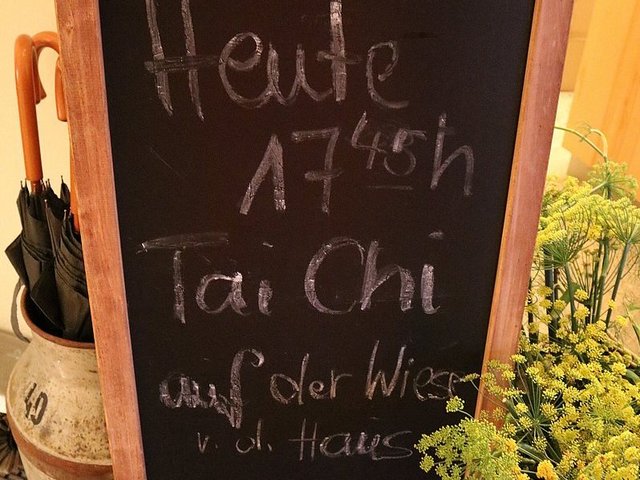 Heute
17 45 h
Tai Chi
auf der Wiese
v. d. Haus
40